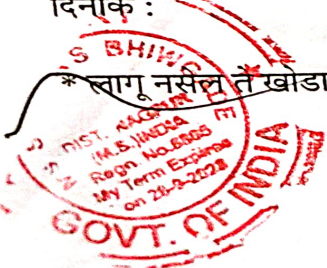 दिनांक :
* लागू नसेल ते खोडा
S BHIWG
DIST. NAGPUR
(M.S.) INDIA
Regn. No.6805
My Term Expires
on 28-2-2028
GOVT. OF INDIA